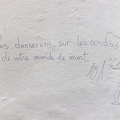 nous danserons sur les cendres
de votre monde de mort